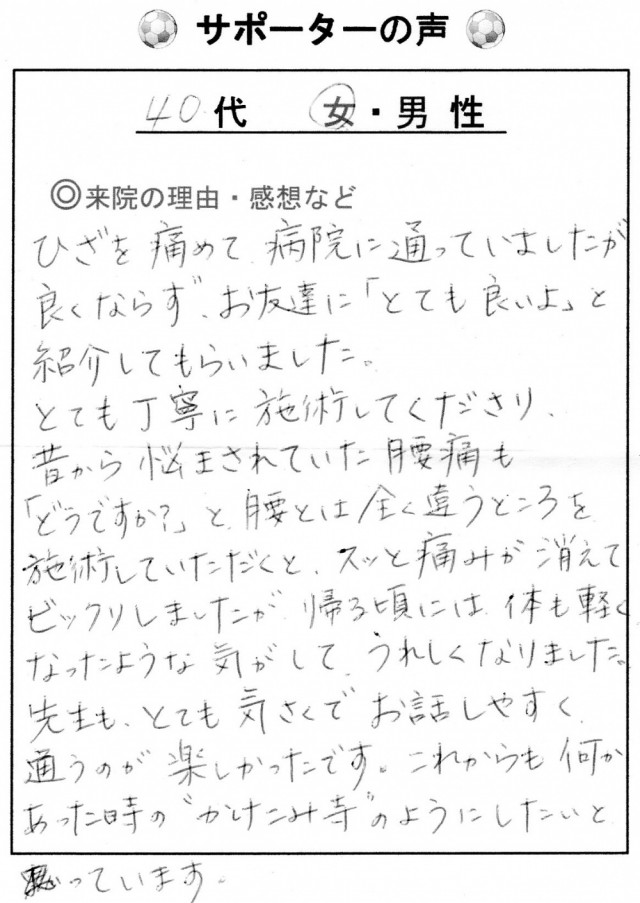 サポーターの声
40代 女・男性
◎来院の理由・感想など
ひざを痛めて病院に通っていましたが
良くならず、お友達に「とても良いよ」と
紹介してもらいました。
とても丁寧に施術してくださり、
昔から悩まされていた腰痛も
「どうですか?」と腰とは全く違うところを
施術していただくと、スッと痛みが消えて
ビックリしましたが、帰る頃には体も軽く
なったような気がして、うれしくなりました。
先生も、とても気さくでお話しやすく、
通うのが楽しかったです。これからも何か
あった時の“かけこみ寺”のようにしたいと
思っています。